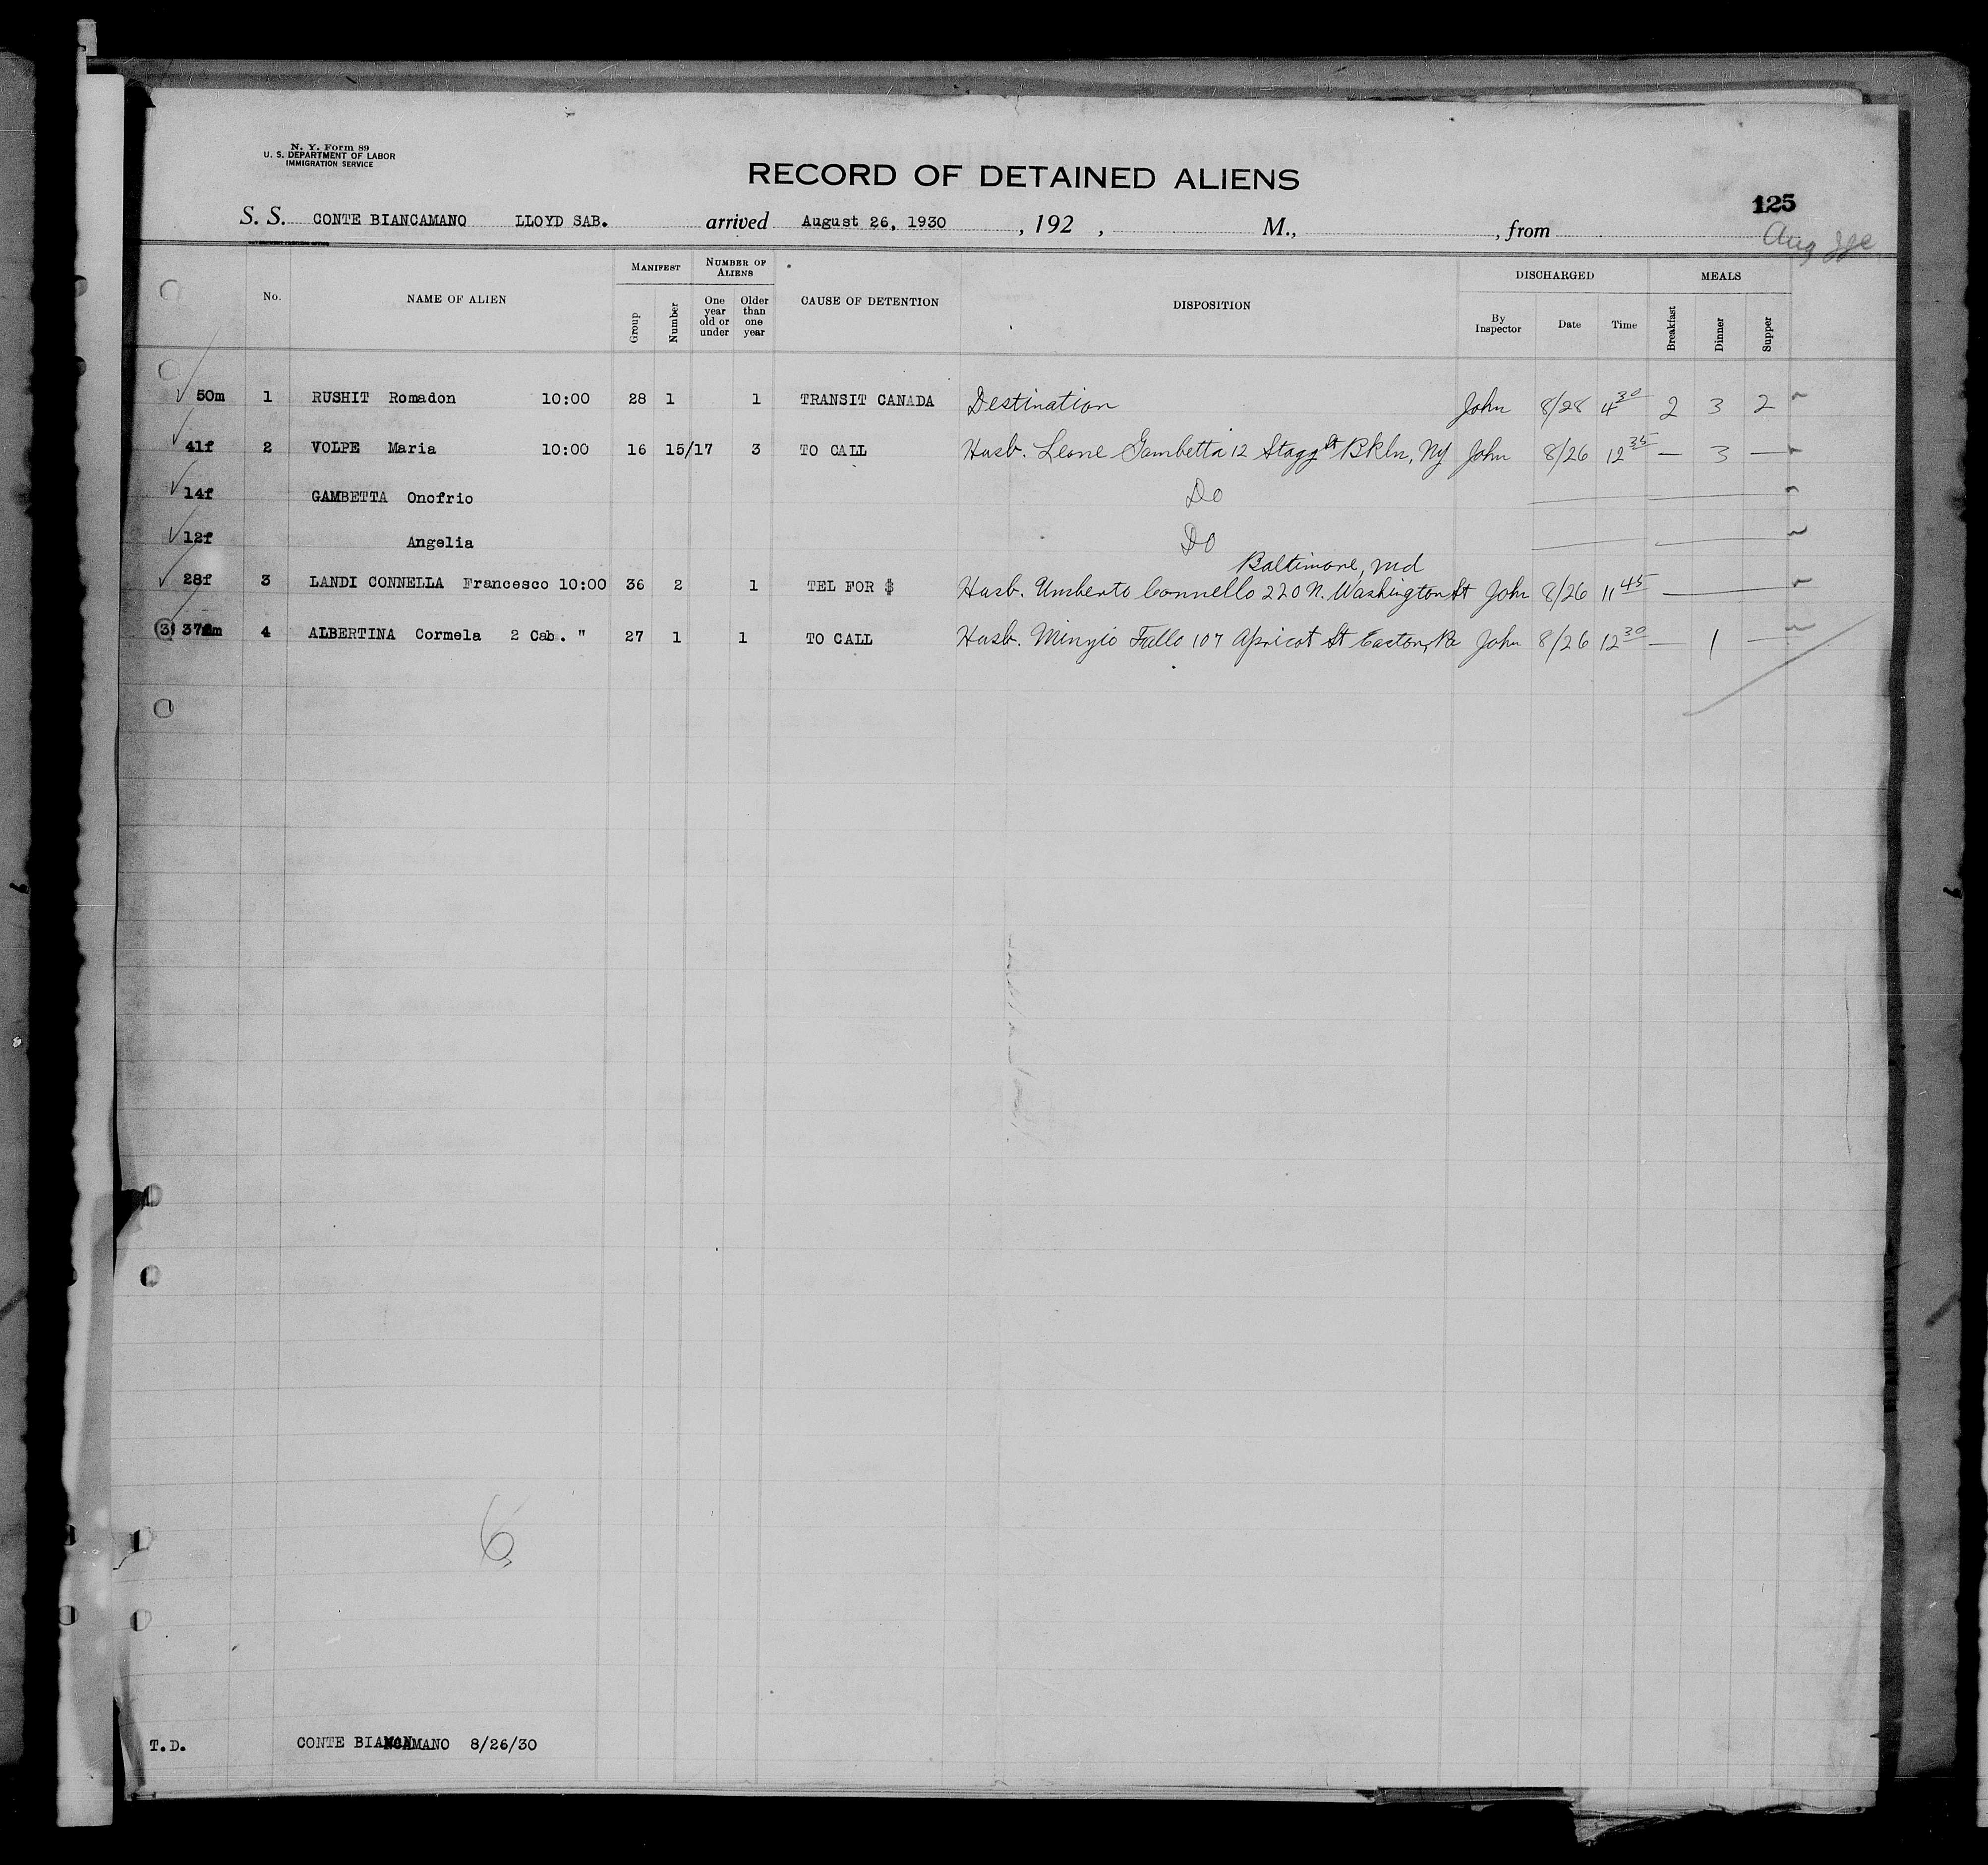 N. Y. Form 89
U. S. DEPARTMENT OF LABOR
IMMIGRATION SERVICE
RECORD OF DETAINED ALIENS
125
S. S. CONTE BIANCAMANO LLOYD SAB. arrived August 26, 1930 , 192 , M., , from
Aug
No. NAME OF ALIEN MANIFEST Group Number NUMBER OF ALIENS One year old or under Older than one year CAUSE OF DETENTION DISPOSITION DISCHARGED By Inspector Date Time MEALS Breakfast Dinner Supper
50m 1 RUSHIT Romadon 10:00 28 1 1 TRANSIT CANADA Destination John 8/28 4 30 2 3 2
41f 2 VOLPE Maria 10:00 16 15/17 3 TO CALL Husb. Leone Gambetta 12 Stagg St Bkln, NY John 8/26 12 35 — 3 —
14f GAMBETTA Onofrio Do
12f Angelia Do
Baltimore, Md
28f 3 LANDI CONNELLA Francesco 10:00 36 2 1 TEL FOR $ Husb. Umberto Connello 220 N. Washington St John 8/26 11 45
4 ALBERTINA Cormela 2 Cab. " 27 1 1 TO CALL Husb. Fallo 107 Apricot St Easton, Pa John 8/26 12 30 — 1 —
6
T.D. CONTE BIANCAMANO 8/26/30